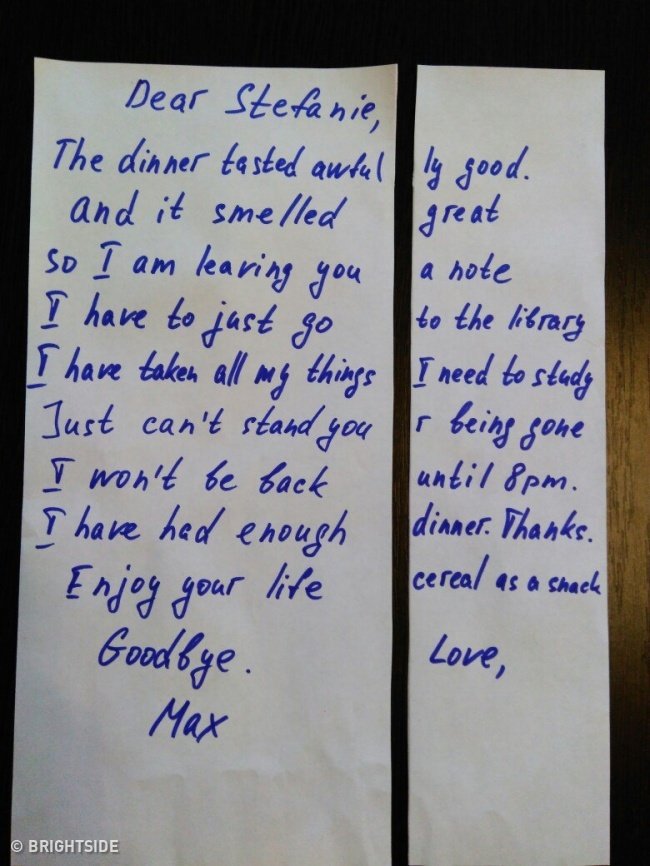 Dear Stefanie,
The dinner tasted awful ly good.
and it smelled great
so I am leaving you a note
I have to just go to the library
I have taken all my things I need to study
Just can't stand you r being gone
I won't be back until 8pm.
I have had enough dinner. Thanks.
Enjoy your life cereal as a snack
Goodbye. Love,
Max
© BRIGHTSIDE